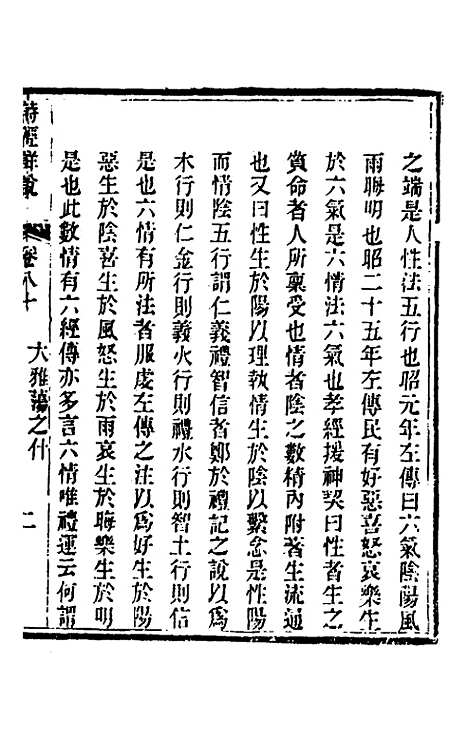 之端是人性法五行也昭元年左傳曰六氣陰陽風
雨晦明也昭二十五年左傳民有好惡喜怒哀樂生
於六氣是六情法六氣也孝經援神契曰性者生之
質命者人所稟受也情者陰之數精內附著生流通
也又曰性生於陽以理執情生於陰以繫念是性陽
而情陰五行謂仁義禮智信者鄭於禮記之說以爲
木行則仁金行則義火行則禮水行則智土行則信
是也六情有所法者服虔左傳之注以爲好生於陽
惡生於陰喜生於風怒生於雨哀生於晦樂生於明
是也此數情有六經傳亦多言六情唯禮運云何謂
詩經詳說 卷八十 大雅蕩之什 二